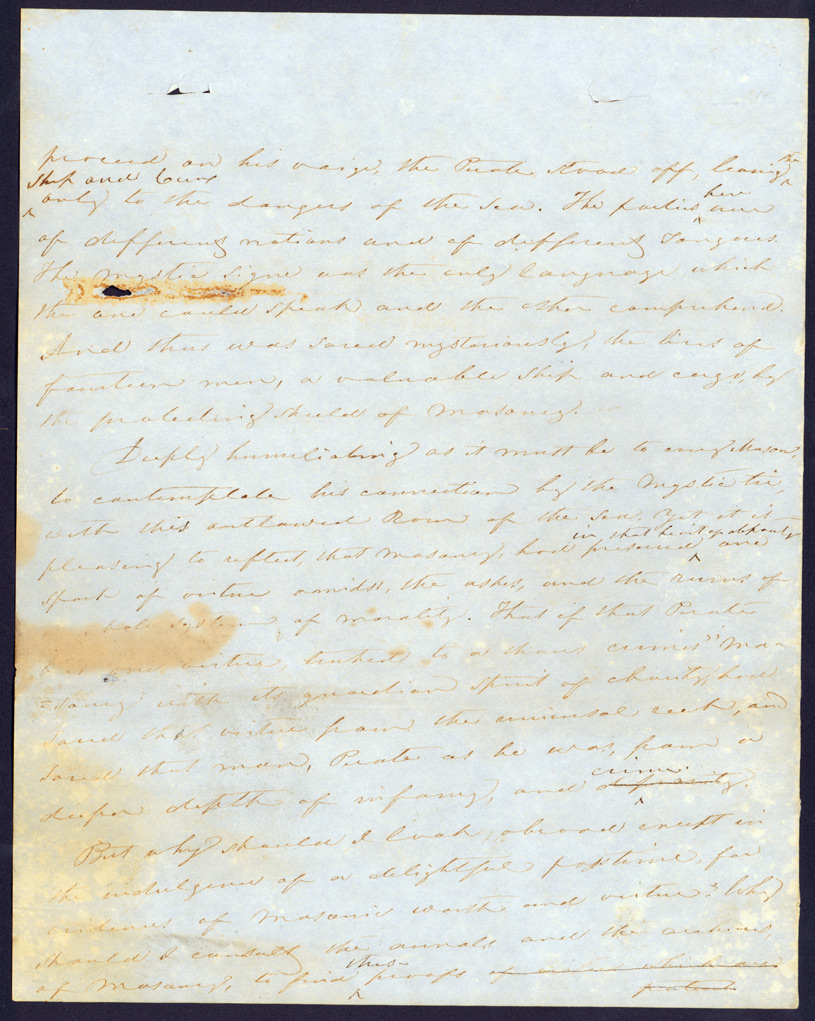 proceed on his voige, the Pirate stood off, leaving the
ship and crew
only to the dangers of the sea. The parties here were
of different nations and of different Tongues.
The mystic signe was the only language which
the one could speak and the other comprehend.
And thus was saved mysteriously, the lives of
fourteen men, a valuable ship and cargo, by
the protecting shield of Masonry. —
Deeply humiliating as it must be to every Mason,
to contemplate his connection by the Mystic tie,
with this outlawed Rover of the Sea. Yet it is
pleasing to reflect, that Masonry, had preserved in, that heart of depravity one
spark of virtue amidst, the ashes, and the ruins of
system of morality. That if that Pirate
but one virtue, linked to a thous crimes" Ma-
=sonry with its guardian spirit of charity, had
saved that virtue from the universal reck, and
saved that man, Pirate as he was, from a
deeper depth of infamy, and depravity. crime.
But why should I look, abroad except in
the indulgence of a delightful pastime, for
evidences of Masonic worth and virtue? Why
should I consult the annals and the archives,
of Masonry, to find these proofs of virtue which are